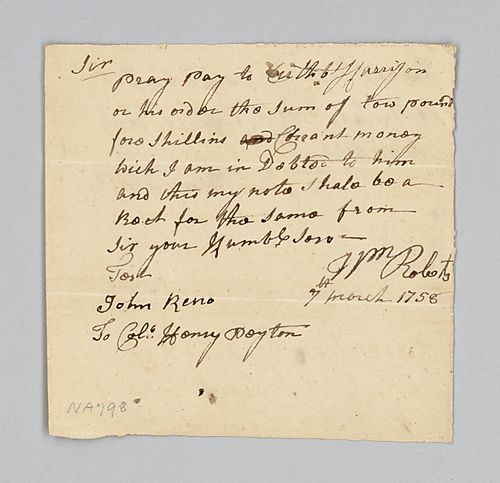 Sir
Pray Pay to Cuthbt Harrison
or his order the Sum of tow pound
fore Shillins and Corant money
wich I am in Debted to him
and this my note Shale be a
Rect for the Same from
Sir your Humble Serv
Test Wm Roberts
John Reno 7th march 1758
To Colo Henry Peyton
NA798